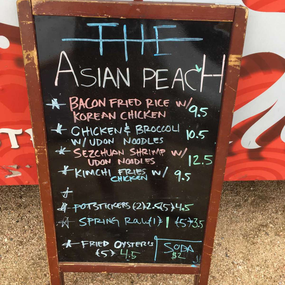 THE
ASIAN PEACH
BACON FRIED RICE W/
KOREAN CHICKEN 9.5
CHICKEN & BROCCOLI
W/ UDON NOODLES 10.5
SEZCHUAN SHRIMP W/
UDON NOODLES 12.5
KIMCHI FRIES W/
CHICKEN 9.5
POTSTICKERS (2) 2.5 (5) 4.5
SPRING ROLL (1) 1 (5) 3.5
FRIED OYSTERS
(5) 4.5
SODA
$2